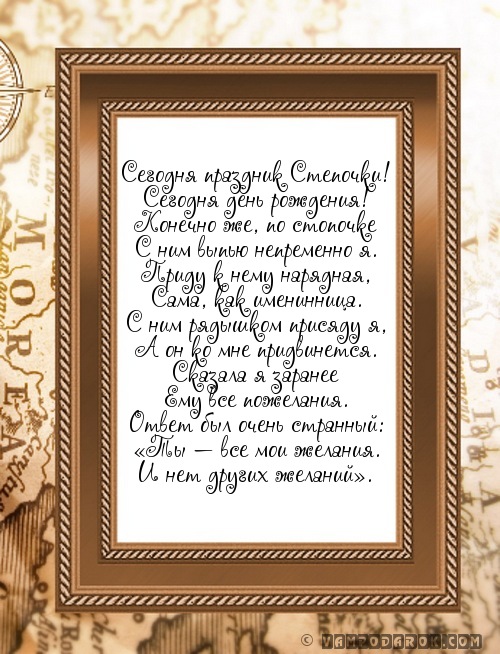 Сегодня праздник Степочки!
Сегодня день рождения!
Конечно же, по стопочке
С ним выпью непременно я.
Приду к нему нарядная,
Сама, как именинница.
С ним рядышком присяду я,
А он ко мне придвинется.
Сказала я заранее
Ему все пожелания.
Ответ был очень странный:
«Ты — все мои желания.
И нет других желаний».
MOREA
© VAMPODAROK.COM